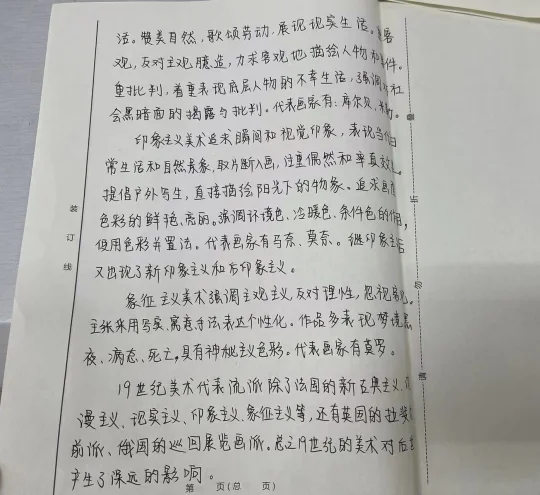 活。赞美自然，歌颂劳动，展现现实生活。
观，反对主观臆造，力求客观地描绘人物和事件。
重批判，着重表现底层人物的不幸生活，强调对社
会黑暗面的揭露与批判。代表画家有：库尔贝、
印象主义美术追求瞬间和视觉印象，表现当代日
常生活和自然景象，取片断入画，注重偶然和率真效
提倡户外写生，直接描绘阳光下的物象。追求画面
色彩的鲜艳、亮丽。强调环境色、冷暖色、条件色的作用，
使用色彩并置法。代表画家有马奈、莫奈。继印象主义后
又出现了新印象主义和后印象主义。
象征主义美术强调主观主义，反对理性，忽视
主张采用写实、寓意手法表达个性化。作品多表现梦境、黑
夜、病态、死亡，具有神秘主义色彩。代表画家有莫罗。
19世纪美术代表流派除了法国的新古典主义、
漫主义、现实主义、印象主义、象征主义等，还有英国的拉斐尔
前派、俄国的巡回展览画派。总之19世纪的美术对后世
产生了深远的影响。
第 页(总 页)
装
订
线